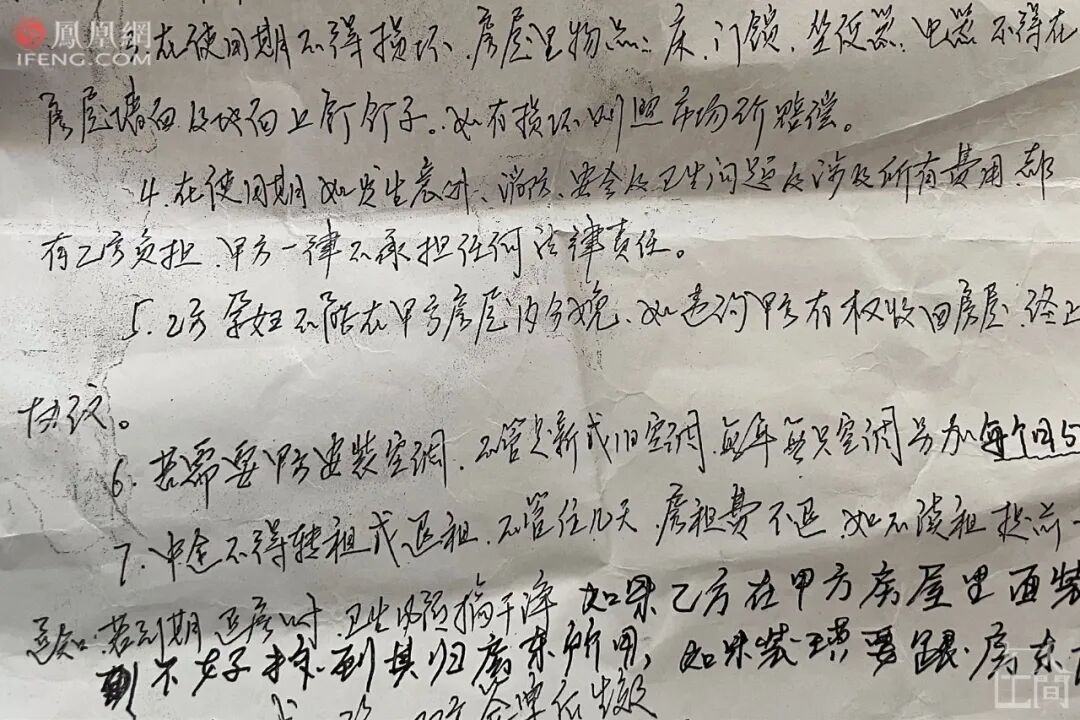 鳳凰網
IFENG.COM
3.在使用期不得损坏,房屋里物品:床、门锁、坐便器、电器不得在
房屋墙面及地面上钉钉子。如有损坏则照市场价赔偿。
4.在使用期如发生意外、消防、安全及卫生问题及涉及所有费用都
有乙方负担,甲方一律不承担任何法律责任。
5.乙方孕妇不能在甲方房屋内分娩、如违约甲方有权收回房屋,终止
协议。
6.若需要甲方安装空调,不管是新或旧空调,每年每只空调另加每个月5
7.中途不得转租或退租,不管住几天,房租费不退,如不续租提前一
通知.若到期退房时,卫生必须搞干净 如果乙方在甲方房屋里面装
不好 归房东所用,如果装 要跟房东
工间